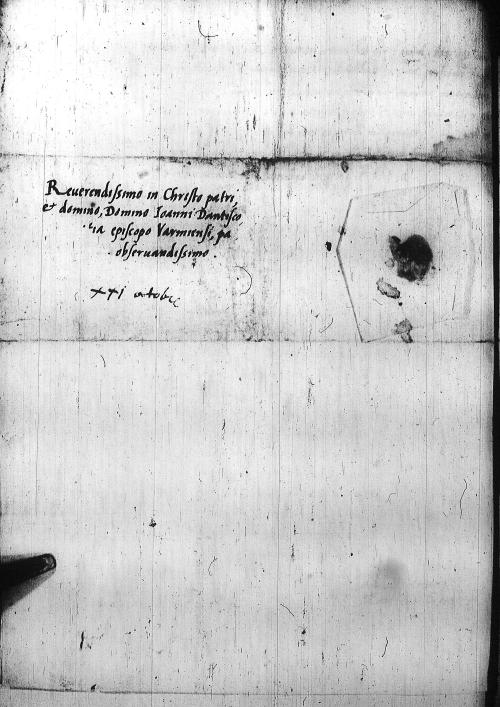 Reuerendissimo in Christo patri,
et domino, Domino Ioanni Dantisco
episcopo Varmiensi, pa
obseruandissimo.
XXI octobr